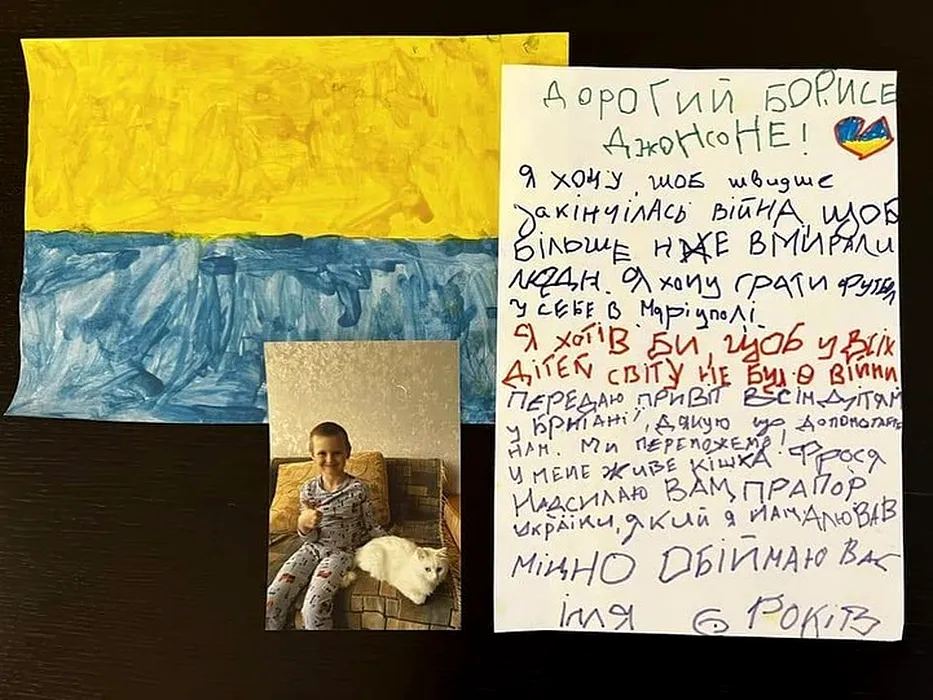 ДОРОГИЙ БОРИСЕ
ДЖОНСОНЕ!
Я ХОЧУ, ЩОБ ШВИДШЕ
ЗАКІНЧІЛАСЬ ВІЙНА, ЩОБ
БІЛЬШЕ НЕ ВМИРАЛИ
ЛЮДИ. Я ХОЧУ ГРАТИ ФУТБОЛ
У СЕБЕ В МАРІУПОЛІ.
Я ХОТІВ БИ, ЩОБ У ВСІХ
ДІТЕЙ СВІТУ НЕ БУЛО ВІЙНИ
ПЕРЕДАЮ ПРИВІТ ВСІМ ДІТЯМ
У БРИТАНІЇ, ДЯКУЮ ЩО ДОПОМОГАЄТЕ
НАМ. МИ ПЕРЕМОЖЕМО!
У МЕНЕ ЖИВЕ КІШКА ФРОСЯ
НАДСИЛАЮ ВАМ ПРАПОР
УКРАЇНИ, ЯКИЙ Я НАМАЛЮВАВ
МІЦНО ОБІЙМАЮ ВАС
ІЛЛЯ 6 РОКІВ